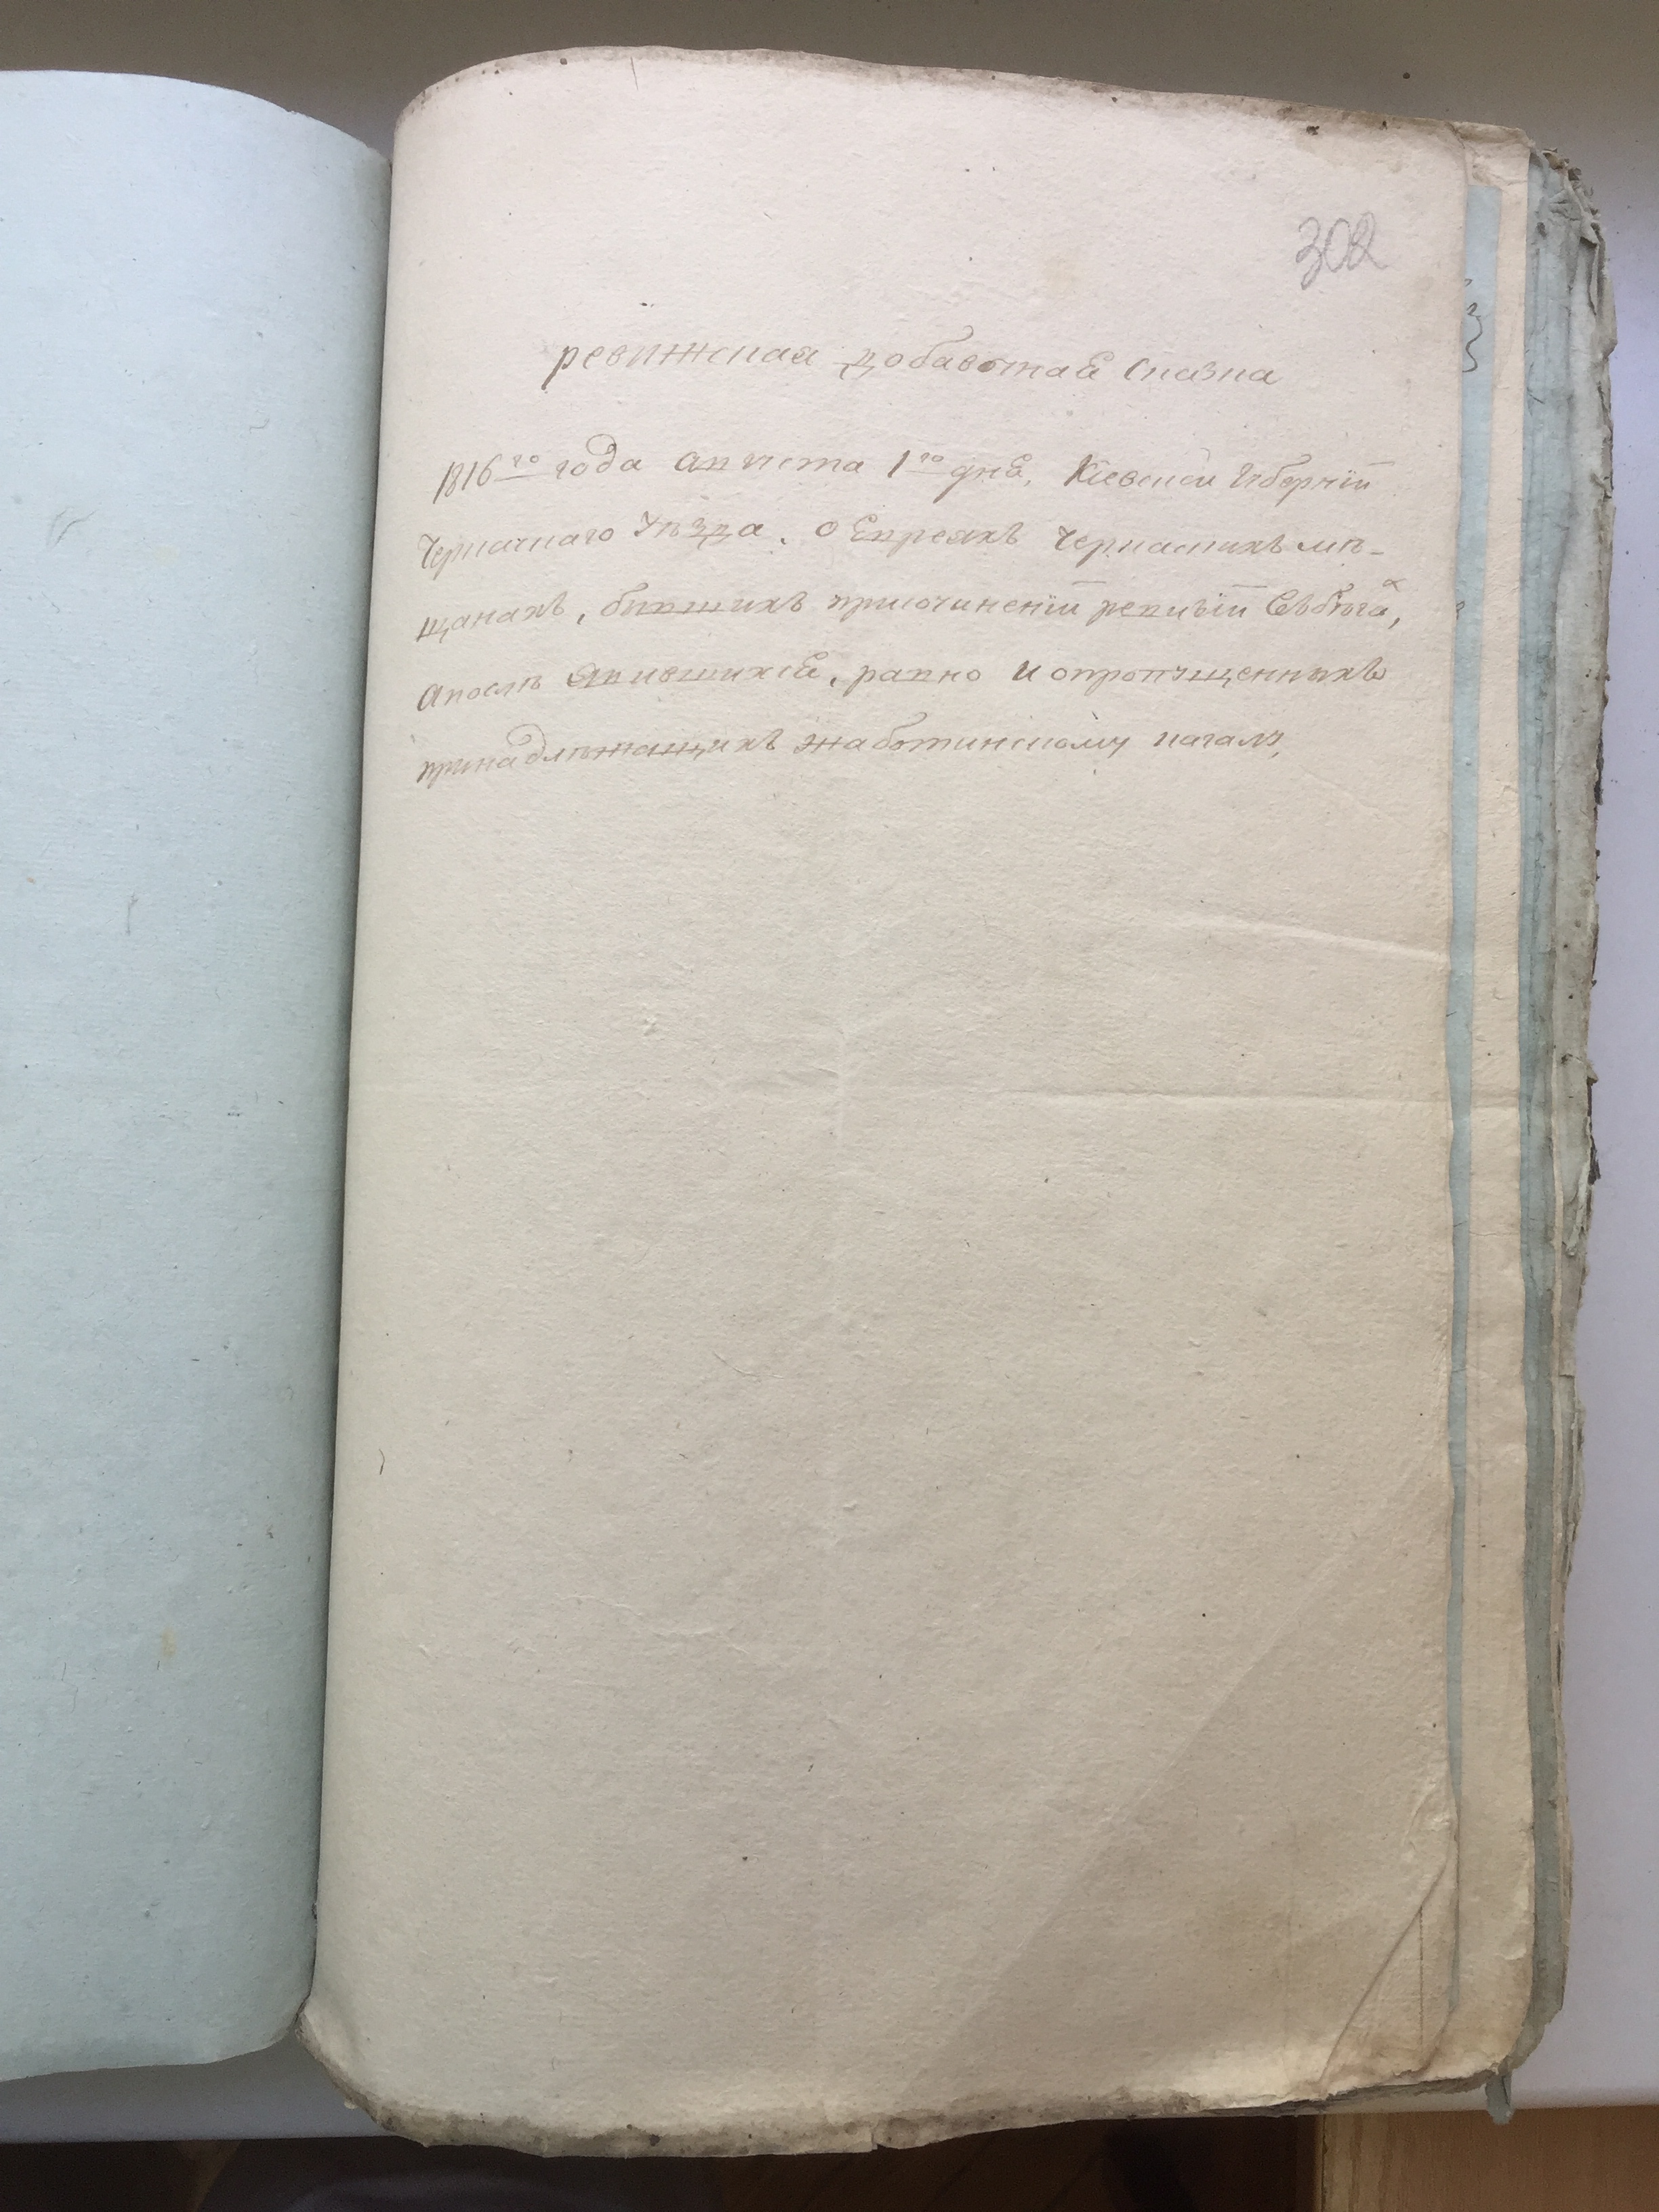 302
ревижская добавотная сказка
1816го года августа 1го дня, Киевской губернїи
Черкаскаго уѣзда, о Евреяхъ Черкаскихъ мѣ-
щанахъ, бывшихъ при сочиненїи ревизїи въ бѣгах,
а послѣ явившихся, равно и о пропущенныхъ
принадлѣжащихъ Жаботинскому кагалу,